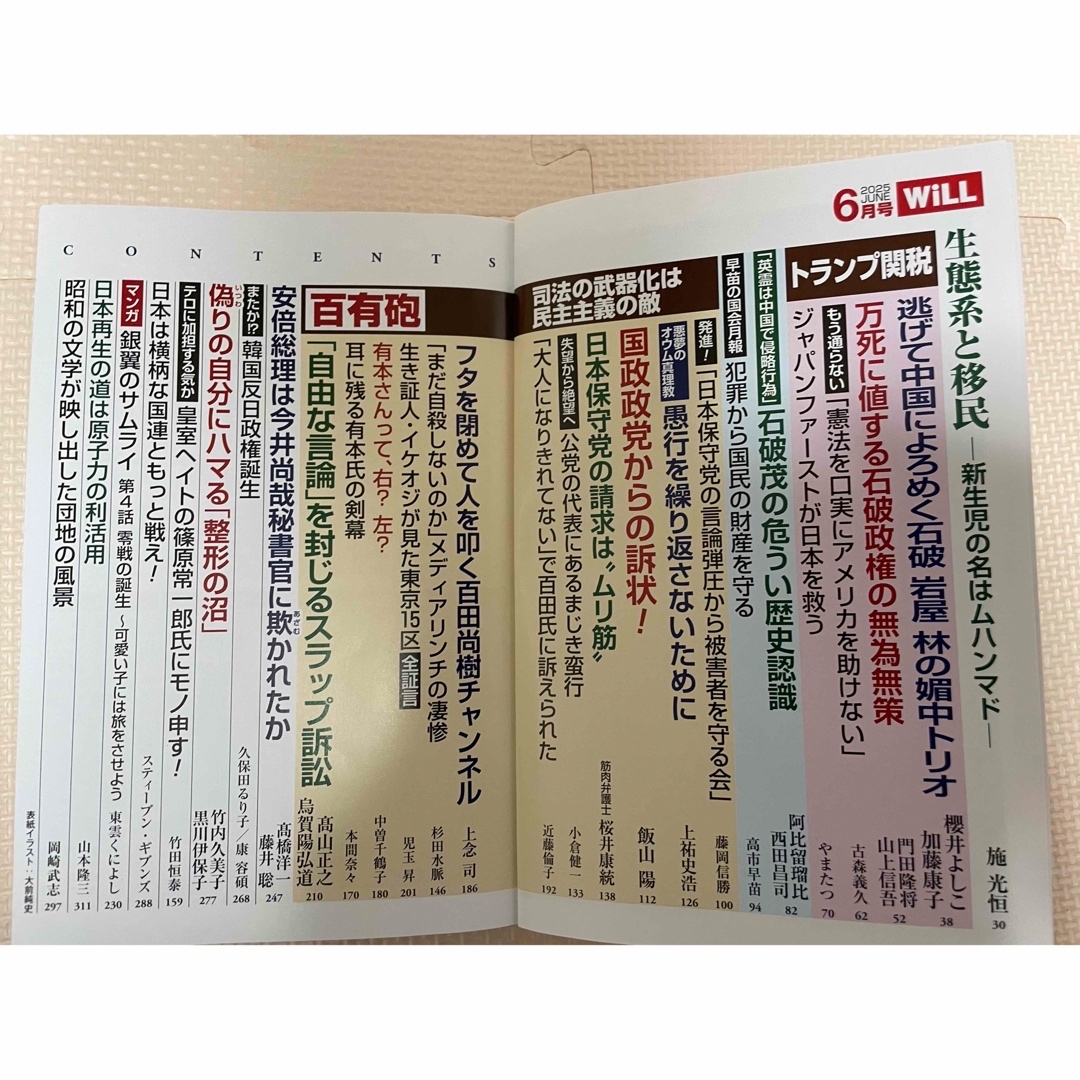 WiLL
2025
JUNE
6月号
生態系と移民 ―新生児の名はムハンマド―
施 光恒
30
トランプ関税
逃げて中国によろめく石破 岩屋 林の媚中トリオ
櫻井よしこ
加藤康子
38
万死に値する石破政権の無為無策
門田隆将
山上信吾
52
もう通らない 「憲法を口実にアメリカを助けない」
古森義久
62
ジャパンファーストが日本を救う
やまたつ
70
「英霊は中国で侵略行為」 石破茂の危うい歴史認識
阿比留瑠比
西田昌司
82
早苗の国会月報 犯罪から国民の財産を守る
高市早苗
94
司法の武器化は
民主主義の敵
発進! 「日本保守党の言論弾圧から被害者を守る会」
藤岡信勝
100
悪夢の
オウム真理教 愚行を繰り返さないために
上祐史浩
126
国政政党からの訴状!
飯山 陽
112
日本保守党の請求は〝ムリ筋〟
筋肉弁護士 桜井康統
138
失望から絶望へ 公党の代表にあるまじき蛮行
小倉健一
133
「大人になりきれてない」で百田氏に訴えられた
近藤倫子
192
CONTENTS
百有砲
フタを閉めて人を叩く百田尚樹チャンネル
上念 司
186
「まだ自殺しないのか」メディアリンチの凄惨
杉田水脈
146
生き証人・イケオジが見た東京15区 全証言
児玉 昇
201
有本さんって、右? 左?
中曽千鶴子
180
耳に残る有本氏の剣幕
本間奈々
170
「自由な言論」を封じるスラップ訴訟
髙山正之
烏賀陽弘道
210
安倍総理は今井尚哉秘書官に欺かれたか
あざむ
髙橋洋一
藤井 聡
247
またか!? 韓国反日政権誕生
久保田るり子/康 容碩
268
偽りの自分にハマる「整形の沼」
いつわ
竹内久美子
黒川伊保子
277
テロに加担する気か 皇室ヘイトの篠原常一郎氏にモノ申す!
竹田恒泰
159
日本は横柄な国連ともっと戦え!
スティーブン・ギブンズ
288
マンガ 銀翼のサムライ 第4話 零戦の誕生 ~可愛い子には旅をさせよう
東雲くによし
230
日本再生の道は原子力の利活用
山本隆三
311
昭和の文学が映し出した団地の風景
岡崎武志
297
表紙イラスト:大前純史